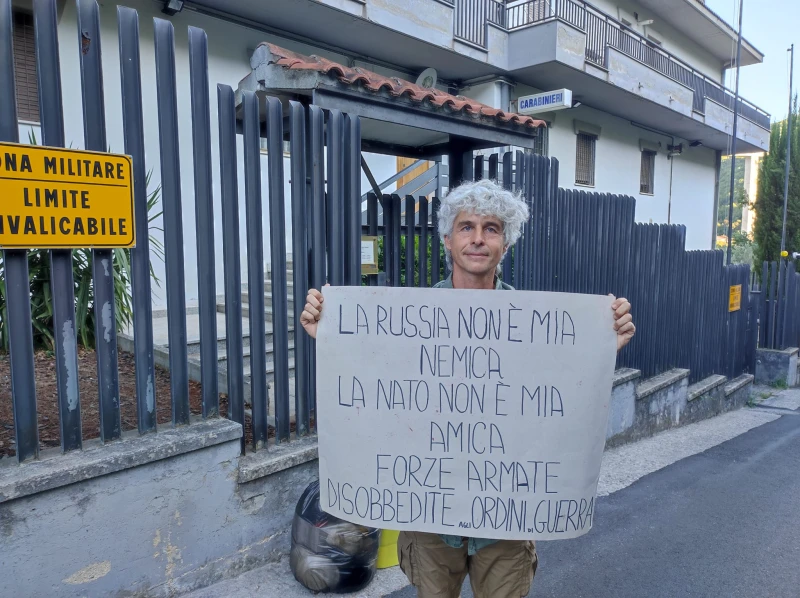 CARABINIERI
ONA MILITARE
LIMITE
NVALICABILE
LA RUSSIA NON È MIA
NEMICA
LA NATO NON È MIA
AMICA
FORZE ARMATE
DISOBBEDITE AGLI ORDINI DI GUERRA